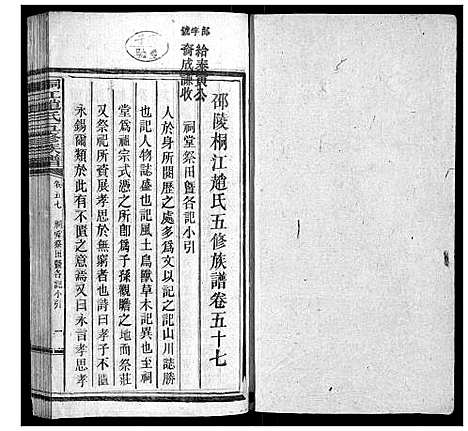 部字號
給泰寅公
裔成謙收
邵陵桐江趙氏五修族譜卷五十七
祠堂祭田暨各記小引
人於身所閱歷之處多爲文以記之記山川誌勝
也記人物誌盛也記風土鳥獸草木記異也至祠
堂爲祖宗式憑之所卽爲子孫觀瞻之地而祭莊
又祭祀所資展孝思於無窮者也詩曰孝子不匱
永錫爾類於此有不匱之意焉又曰永言孝思孝
桐江趙氏五修族譜
卷五十七
祠堂祭田暨各記小引
一